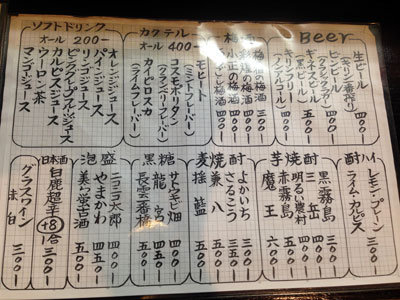 Beer
生ビール
(キリン一番搾り)
400-
ビンビール
ギネスビール
500-
キリンフリー
(ノンアルコール)
300-
梅酒
300-
の梅酒
小正の梅酒
の梅酒
カクテル
オール 400-
モヒート
(ミントフレーバー)
コスモポリタン
(クランベリフレーバー)
カイピロスカ
(ライムフレーバー)
ソフトドリンク
オール 200-
オレンジジュース
パインジュース
リンゴジュース
ピンクグレープフルーツジュース
カルピスジュース
マンゴージュース
ウーロン茶
酎ハイ
レモン・プレーン
ライム・カルピス
300-
芋焼酎
黒霧島
300-
三岳
400-
明るい農村
赤霧島
500-
魔王
600-
麦焼酎
よかいち
さるこう
兼八
500-
揺藍
500-
黒糖
サトウキビ畑
龍宮
長雲番橋
泡盛
ニコニコ太郎
400-
やまかわ
450-
美ら蛍古酒
500-
日本酒
白鹿超辛
+8
1合
300-
グラスワイン
赤
白
300-